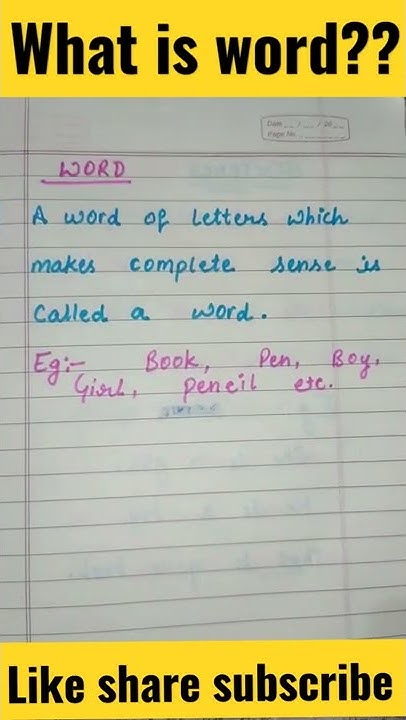 What is word??
Date __/__/20__
Page No.
WORD
A word of letters which
makes complete sense is
called a word.
Eg:- Book, Pen, Boy,
Girl, Pencil etc.
Like share subscribe